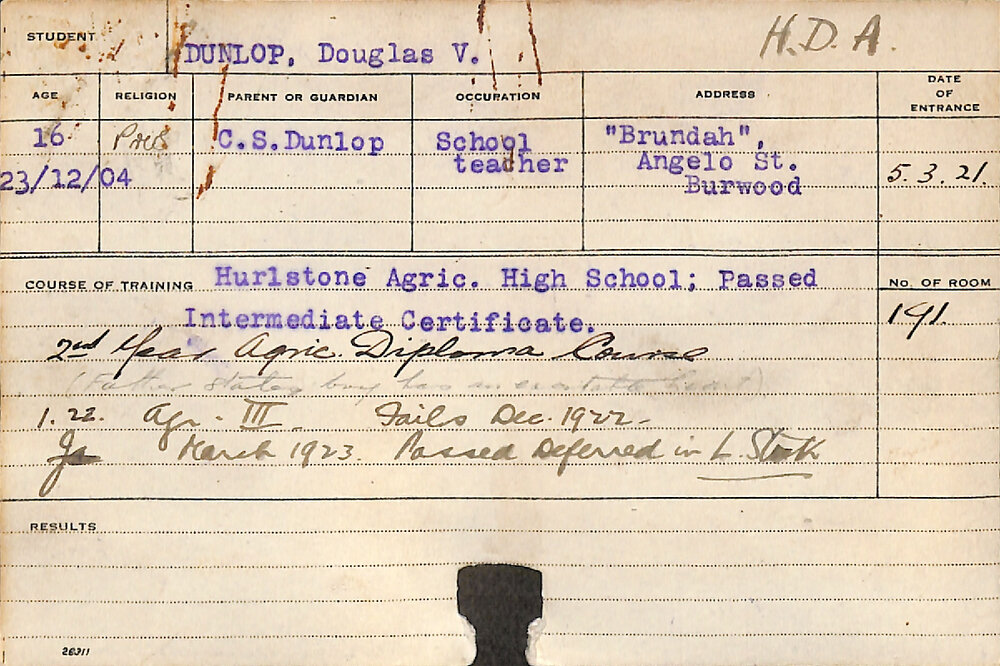 STUDENT DUNLOP, Douglas V. H.D.A.
AGE RELIGION PARENT OR GUARDIAN OCCUPATION ADDRESS DATE OF ENTRANCE
16 Pres C.S.Dunlop School teacher "Brundah",
Angelo St.
Burwood
23/12/04 5.3.21.
COURSE OF TRAINING Hurlstone Agric. High School; Passed
Intermediate Certificate.
No. OF ROOM
191.
2nd Year Agric Diploma Course
(Father states boy has an heart)
1.22. Agr. III. Fails Dec. 1922.
March 1923. Passed Deferred in L. Stock
RESULTS
26311